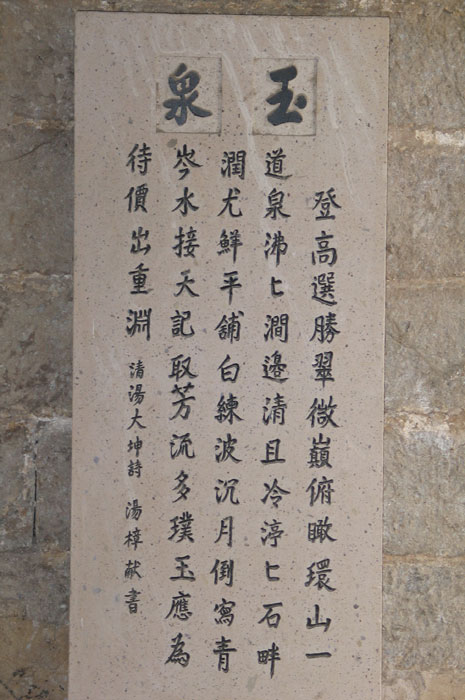 玉泉
登高選勝翠微巔俯瞰環山一
道泉沸匕澗邊清且冷渟匕石畔
潤尤鮮平舖白練波沉月倒寫青
岑水接天記取芳流多璞玉應為
待價出重淵 清湯大坤詩 湯樟献書